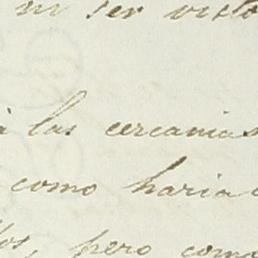 ni ser visto
à las cercanias
como haria
los, pero como